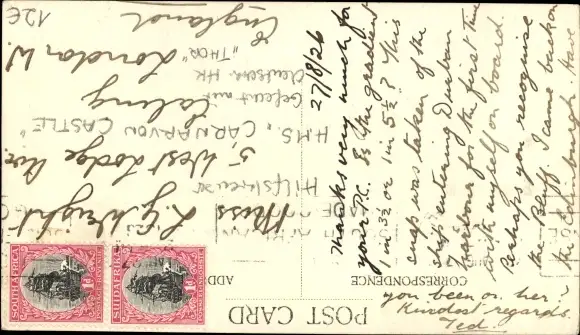 POST CARD
CORRESPONDENCE
ADD
27/8/26
Thanks very much for
your P.C. Is the gradient
1 in 3½ or 1 in 5½? This
snap was taken of the
ship entering Durban
Harbour for the first time
with myself on board.
Perhaps you recognise
the Bluff. I came back on
the Edinburgh. Have
you been on her?
Kindest regards.
Ted
Miss L. G. Wright
5, West Lodge Ave.
Ealing
London W.
England
Hilfskreuzer
H.M.S. "CARNARVON CASTLE"
Gefecht mit
deutschem HK
"THOR"
12€
SOUTH AFRICA
1D
SUIDAFRIKA
1D